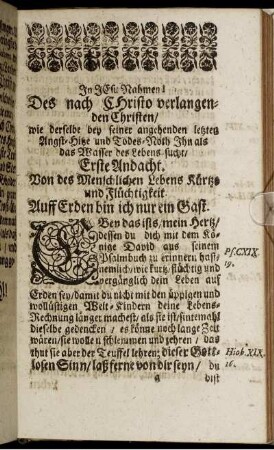 In JEsu Nahmen!
Des nach CHristo verlangen-
den Christen/
wie derselbe bey seiner angehenden letzten
Angst-Hitze und Todes-Noth Ihn als
das Wasser des Lebens sucht/
Erste Andacht.
Von des Menschlichen Lebens Kürtze
und Flüchtigkeit.
Auff Erden bin ich nur ein Gast.
EBen das ists/mein Hertz/
dessen du dich mit dem Kö-
nige David aus seinem
Psalmbuch zu erinnern hast/
nemlich/wie kurtz/flüchtig und
vergänglich dein Leben auff
Erden sey/damit du nicht mit den üppigen und
wollüstigen Welt-Kindern deine Lebens-
Rechnung länger machest/als sie ist/sintemahl
dieselbe gedencken/es könne noch lange Zeit
währen/sie wollen schlemmen und zehren/das
thut sie aber der Teuffel lehren; dieser Gott-
losen Sinn/laß ferne von dir seyn/du
a bist
Ps. CXIX.
19.
Hiob. XIX.
16.